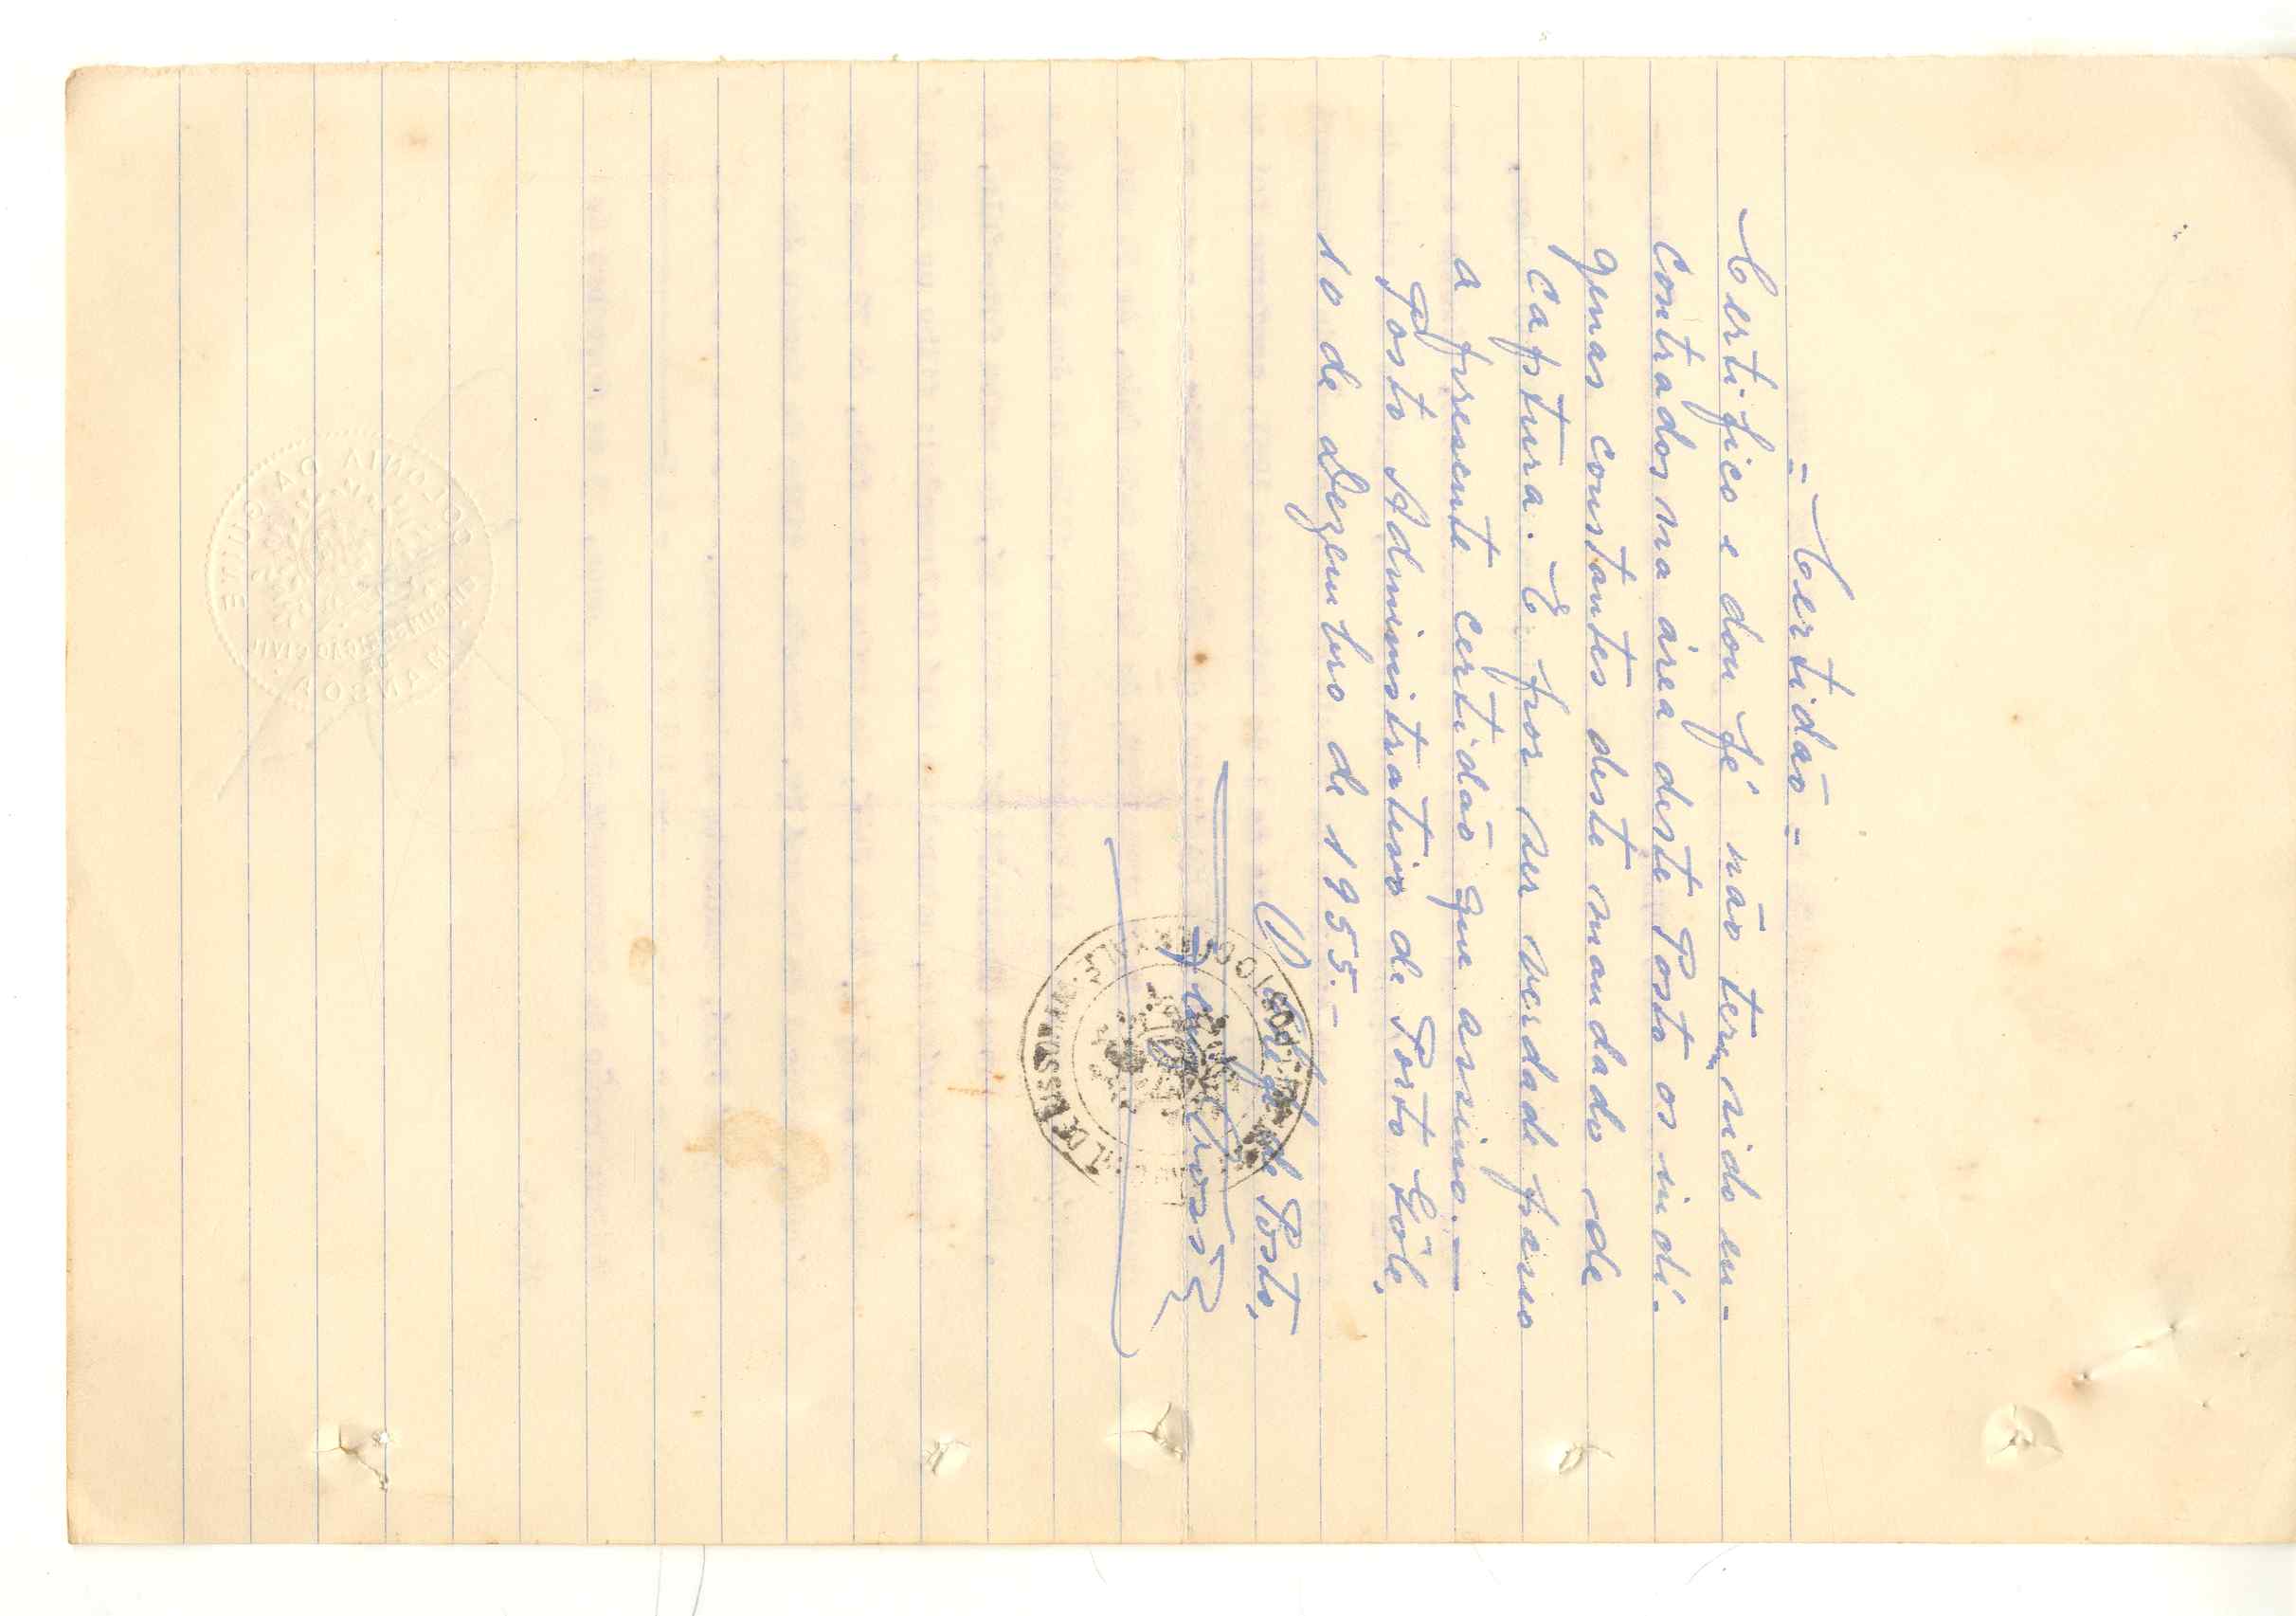 = Certidão =
Certifico e dou fé não terem sido en-
contrados na área deste Posto os indí-
genas constantes deste mandado de
captura. E por ser verdade passo
a presente certidão que assino. —
Posto Administrativo de Porto Gôle,
10 de Dezembro de 1955. —
O Chefe de Posto,
COLONIA DA GUINÉ
CIRCUNSCRIÇÃO CIVIL
DE
MANSOA